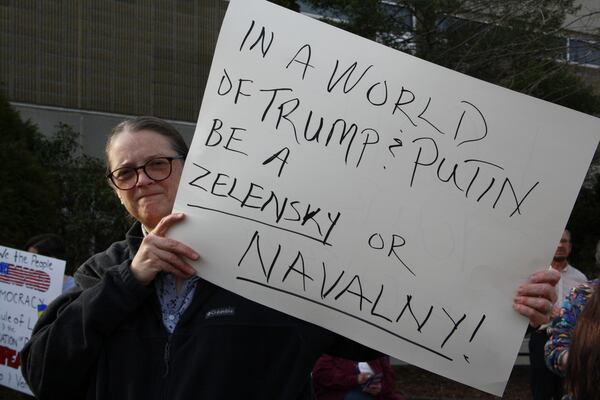 IN A WORLD
OF TRUMP & PUTIN
BE A
ZELENSKY OR
NAVALNY!
We the People
Columbia